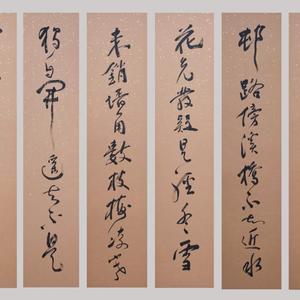 邨路傍溪橋不知近水
花先發疑是經冬雪
未銷墻角數枝梅凌寒
獨自開遙知不是